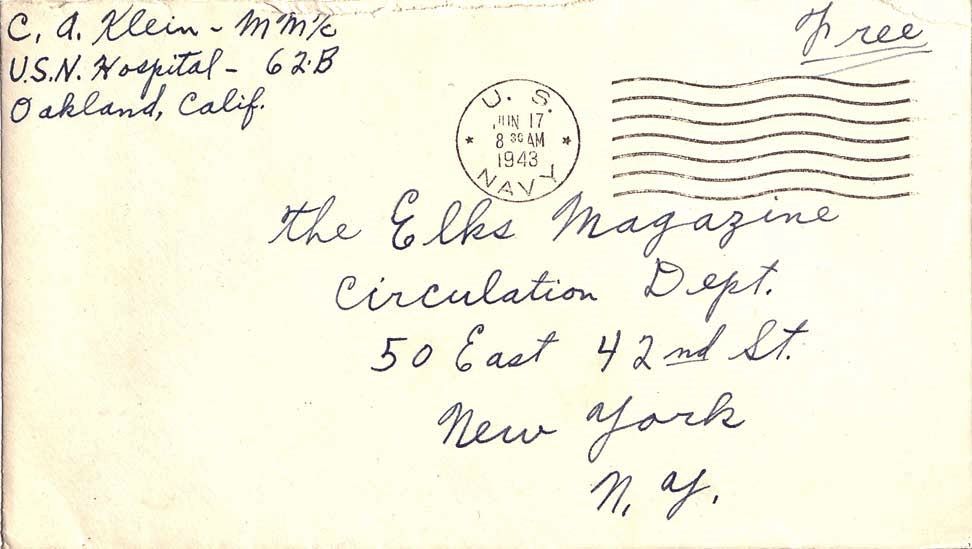 C. A. Klein - MM1/c
U.S.N. Hospital - 62-B
Oakland, Calif.
Free
U. S.
JUN 17
8 30 AM
1943
NAVY
The Elks Magazine
Circulation Dept.
50 East 42nd St.
New York
N. Y.